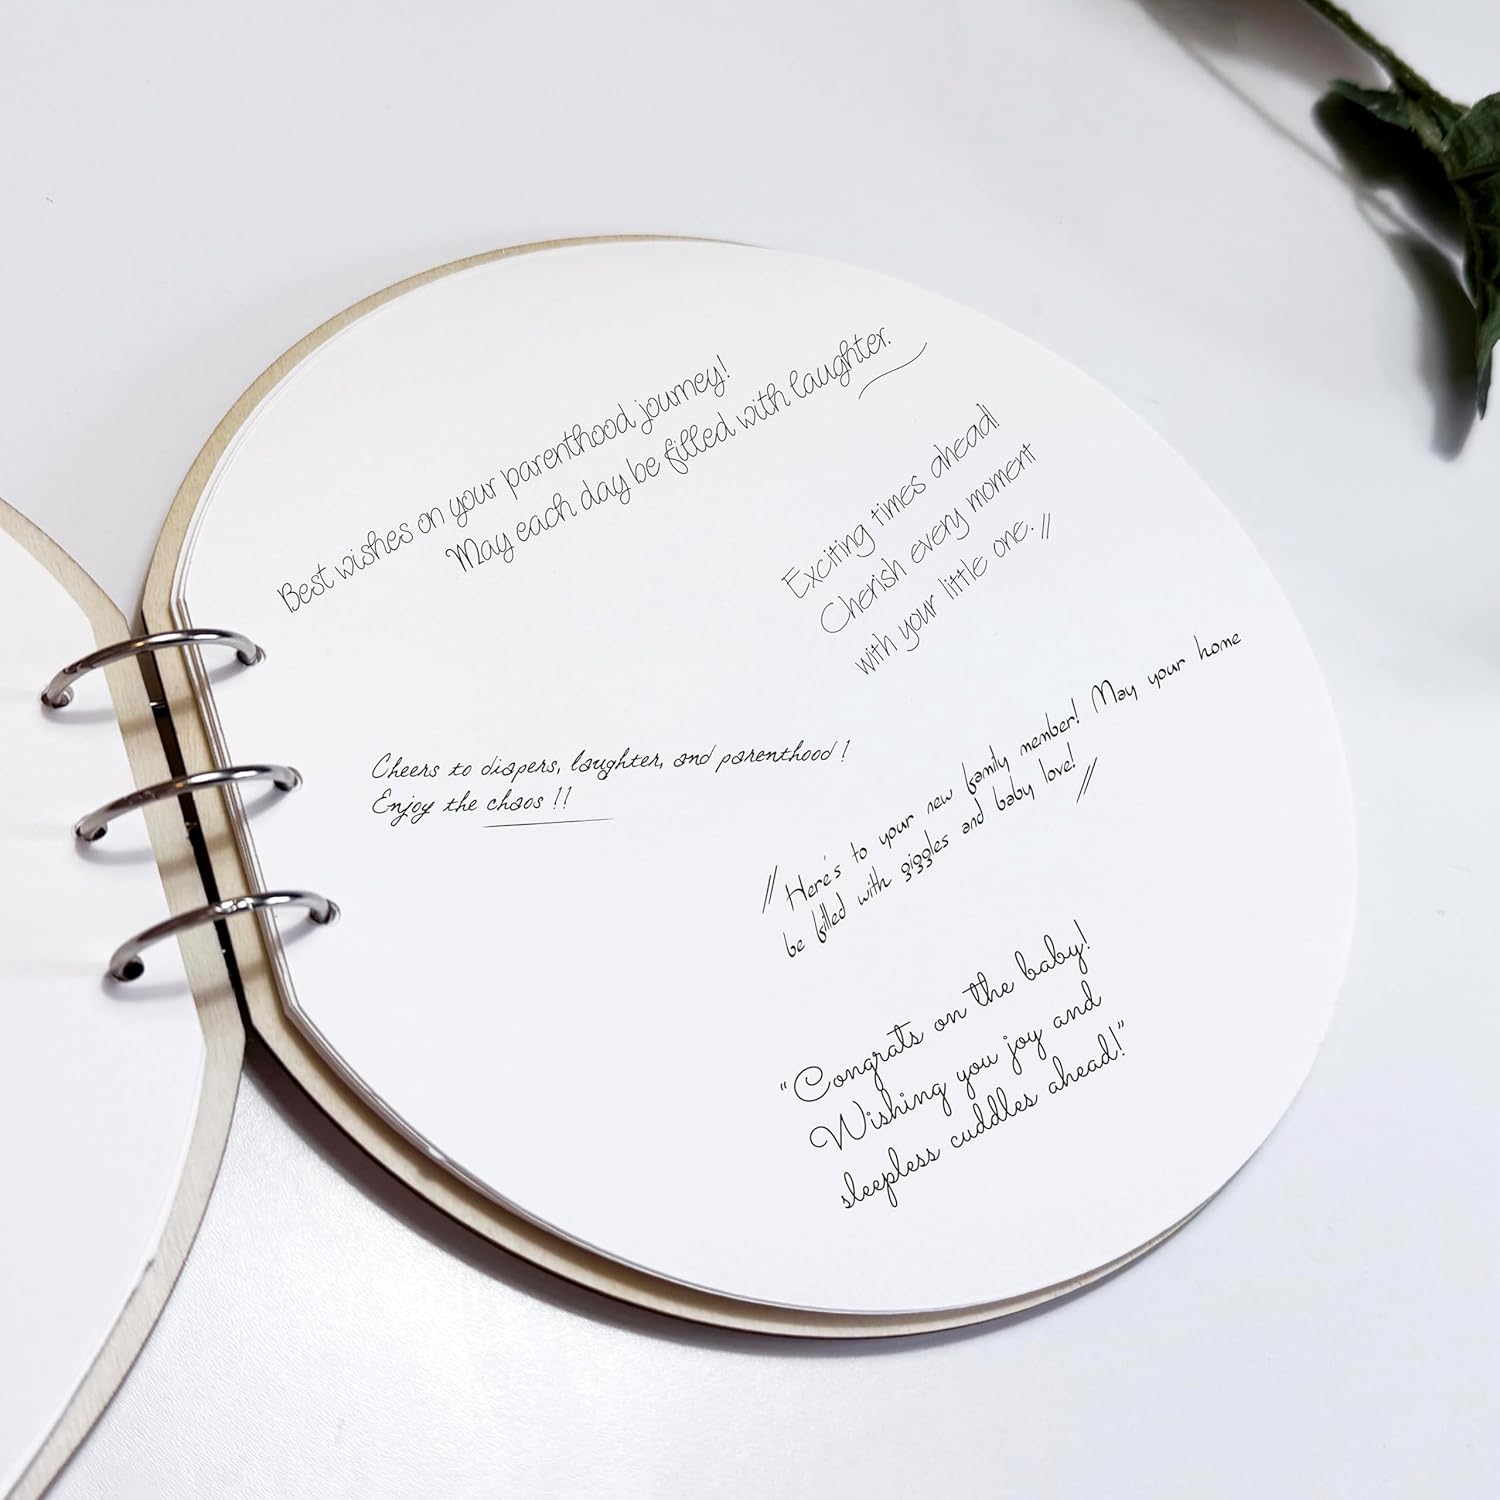 Best wishes on your parenthood journey!
May each day be filled with laughter.
Exciting times ahead!
Cherish every moment
with your little one. //
Cheers to diapers, laughter, and parenthood !
Enjoy the chaos !!
// Here's to your new family member! May your home
be filled with giggles and baby love! //
"Congrats on the baby!
Wishing you joy and
sleepless cuddles ahead!"